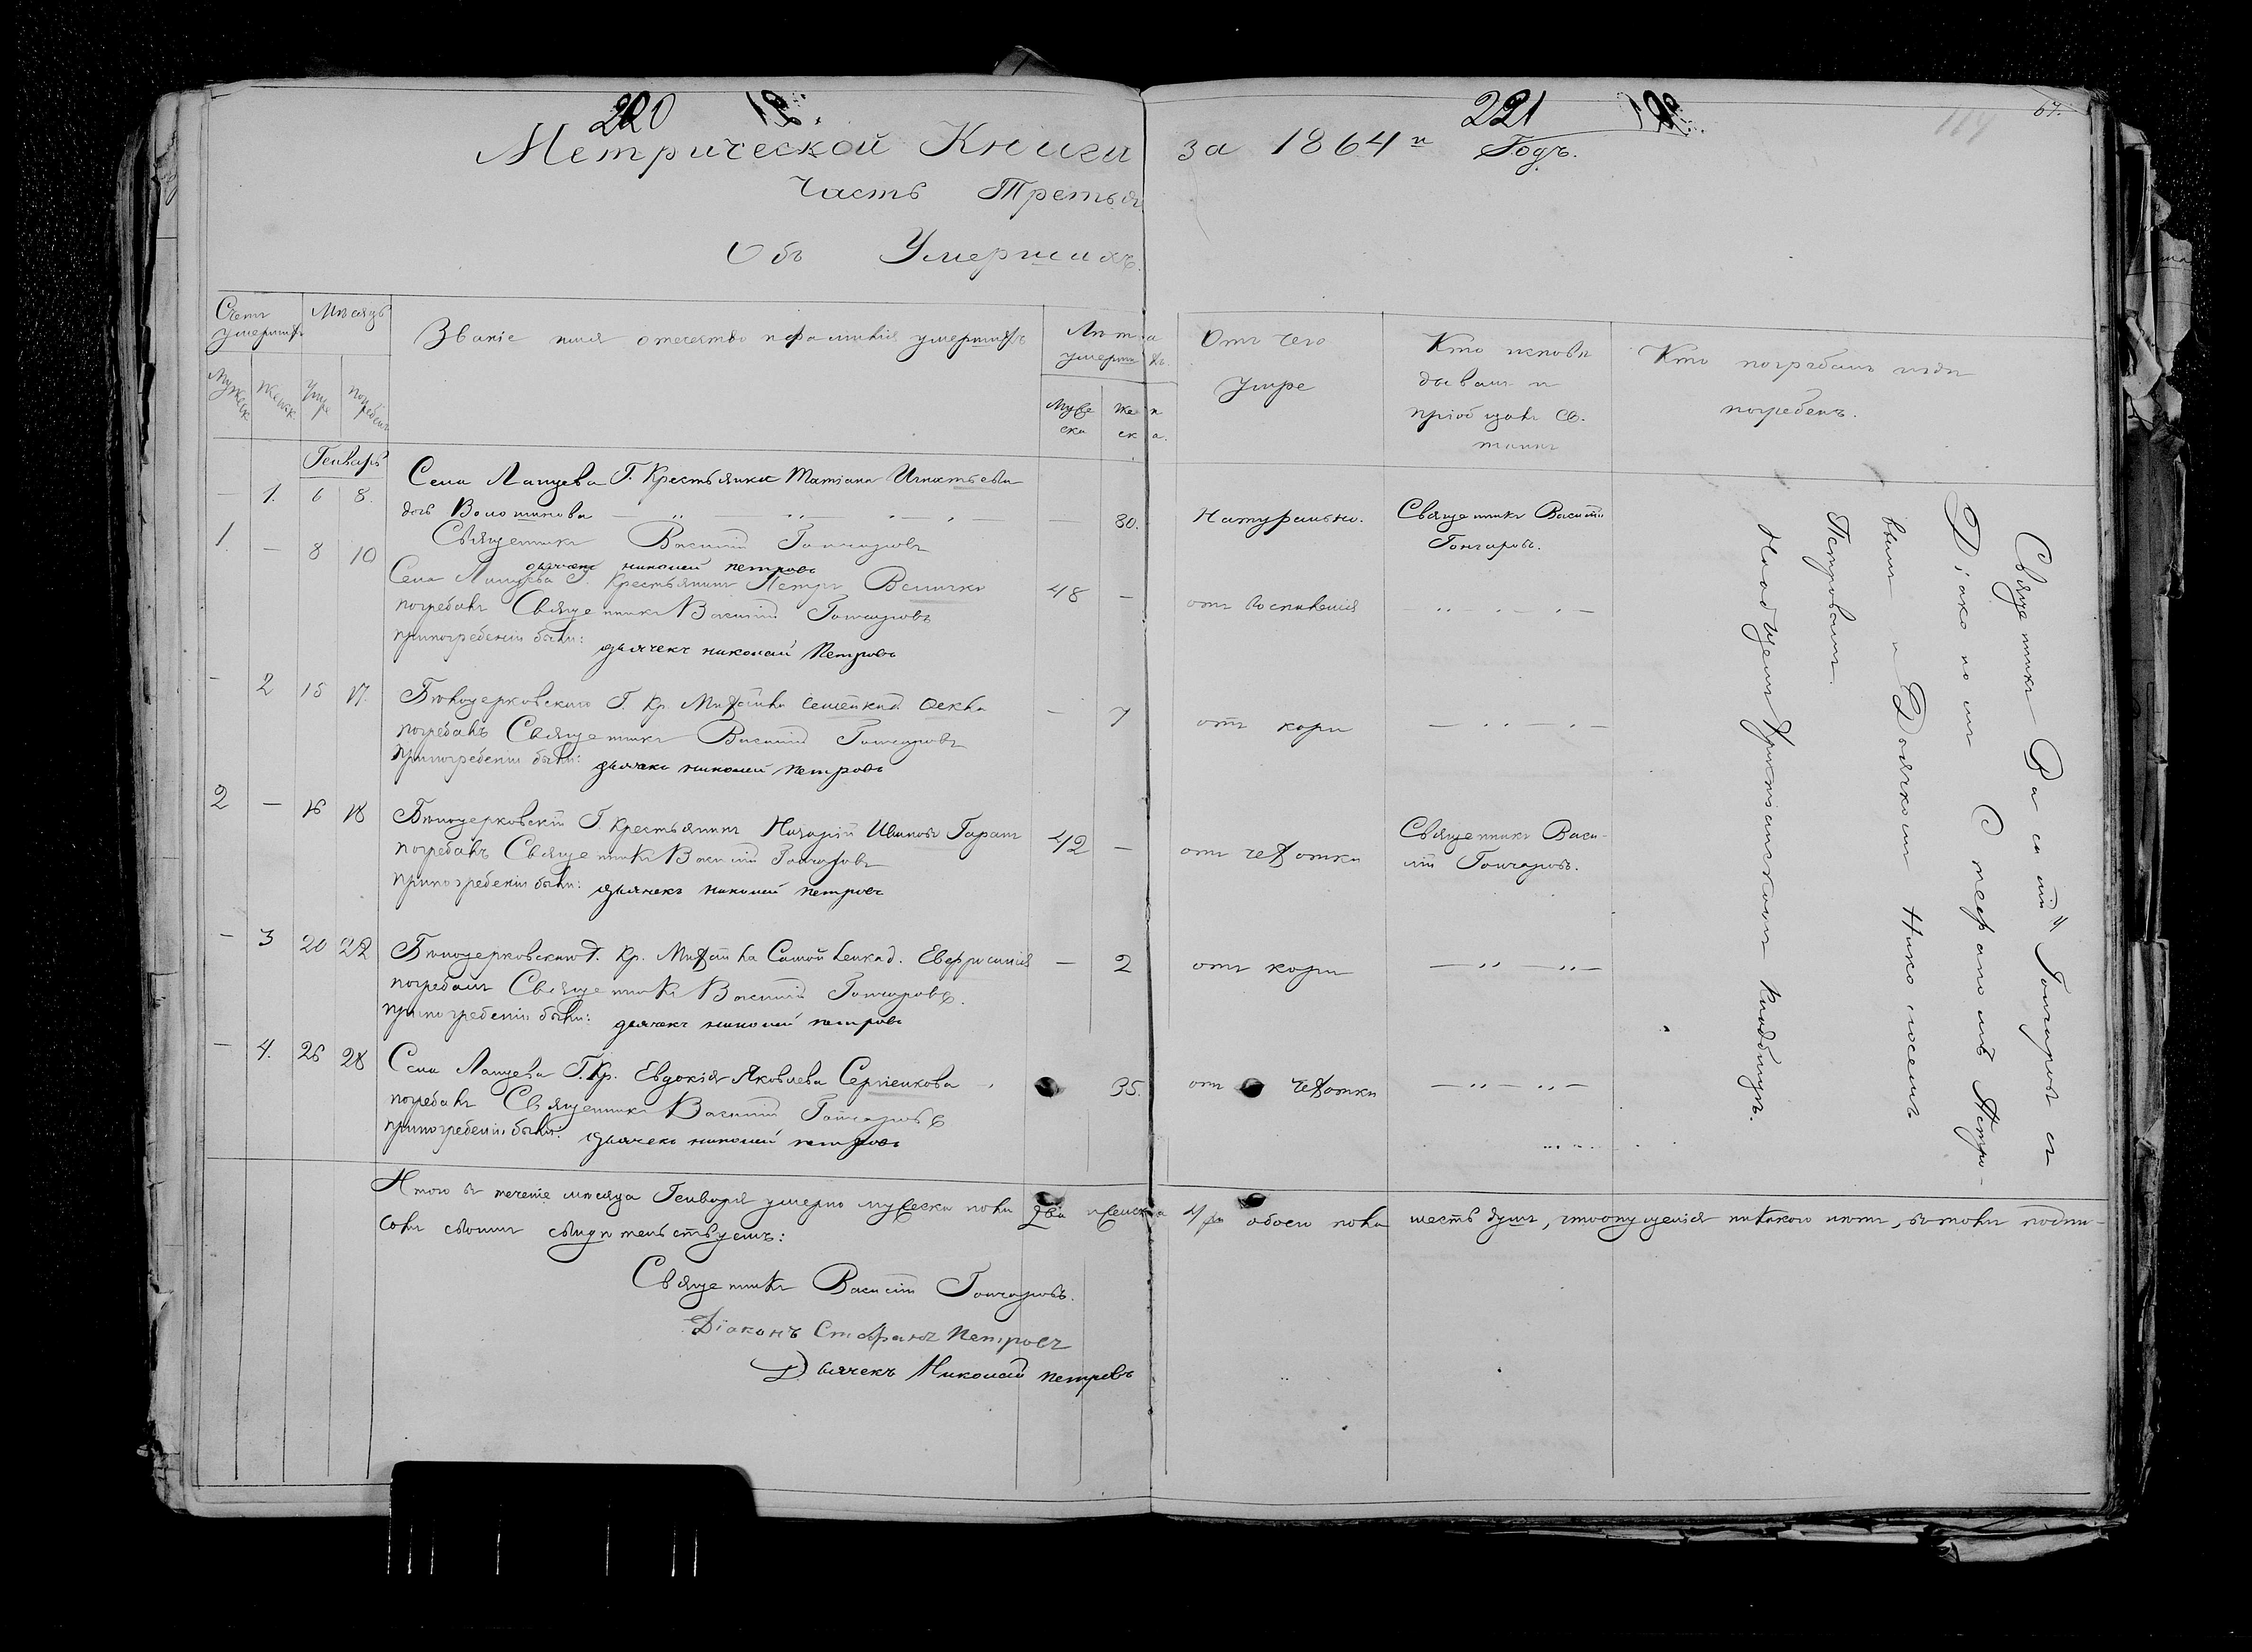 220
221
67.
Метрической Книги за 1864й Годъ.
Часть Третья
Объ Умершихъ.
Счетъ умершихъ
Мѣсяцъ
Званіе имя отечество и фамилія умершихъ
Лѣта умершихъ.
Отъ чего умре
Кто исповѣдывалъ и пріобщалъ св. таинъ
Кто погребалъ и гдѣ погребенъ.
Мужеск
Женск
Умре
погребенъ
Мужеска
Женска.
Генварь
– 1. 6 8. Села Лащева Г. Крестьянка Татіана Игнатьева
дочь Волошинова – 80. Натурально. Священникъ Василій Гончаровъ.
Священникъ Василій Гончаровъ
дьячекъ николай петровъ
1. – 8 10 Села Лащева Г. Крестьянинъ Петръ Величко 48 – отъ воспаленія
погребалъ Священникъ Василій Гончаровъ
при погребеніи были: дьячекъ николай Петровъ
– 2 15 17. Бѣлоцерковскаго Г. Кр. – 7 отъ кори
погребалъ Священникъ Василій Гончаровъ
при погребеніи были: дьячекъ николай петровъ
2 – 16 18 Бѣлоцерковскій Г. Крестьянинъ Назарій Ивановъ 42 – отъ чехотки Священникъ Василій Гончаровъ.
погребалъ Священникъ Василій Гончаровъ
при погребеніи были: дьячекъ николай петровъ
– 3 20 22 Бѣлоцерковскаго Г. Кр. Самойленка д. Евфросинія – 2 отъ кори
погребалъ Священникъ Василій Гончаровъ.
при погребеніи были: дьячекъ николай петровъ
– 4. 26 28 Села Лащева Г. Кр. Евдокія Яковлева Сергіенкова 35. отъ чехотки
погребалъ Священникъ Василій Гончаровъ
при погребеніи были: дьячекъ николай петровъ
Священникъ Василій Гончаровъ съ
Діакономъ Стефаномъ Петро-
вымъ и Дьячкомъ Николаемъ
Петровымъ
На общемъ Христіанскомъ Кладбищѣ.
Итого въ теченіе мѣсяца Генваря умерло мужеска пола два женска 4 обоего пола шесть душъ, что опущенія никакого нѣтъ, въ томъ подпи-
сомъ своимъ свидѣтельствуемъ:
Священникъ Василій Гончаровъ.
Діаконъ Стефанъ Петровъ
Дьячекъ Николай петровъ